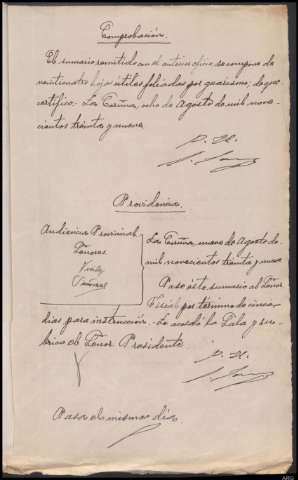 Comprobación
El sumario remitido con el anterior oficio se compone de
veinticuatro hojas útiles foliadas por guarismo, lo que
certifico. La Coruña, ocho de Agosto de mil nove-
cientos treinta y nueve.
P. H.
Providencia
Audiencia Provincial
Señores
La Coruña, nueve de Agosto de
mil novecientos treinta y nueve
Pase éste sumario al Señor
Fiscal por término de cinco
dias para instrucción. Lo acordó la Sala y ru-
brica el Señor Presidente
P. H.
Pasa el mismo dia